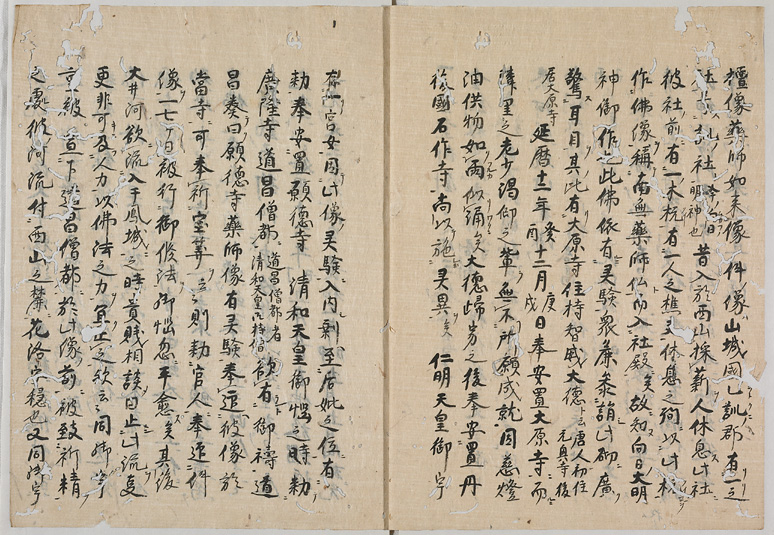 檀像薬師如来像一件像山城國乙訓郡有一之
社号乙訓社今向日明神也昔入於西山採薪人休息此社
彼社前有一木枕有一人之樵夫休息之間以此枕
作佛像稱南無薬師仏而入社殿矣故知向日大明
神御作此佛依有灵験衆庶参詣此砌廣
驚耳目其比有大原寺住持智威大德云唐人初住元興寺後
居大原寺延曆十二年癸酉十二月庚戌日奉安置大原寺而
諱里之老少渴仰之輩無不所願成就因慈燈
油供物如雨似踊矣大德歸寂之後奉安置丹
後國石作寺尚以施灵異矣仁明天皇御宇
在一宮女因此像灵験入内剩至后妃之位有
勅奉安置願德寺清和天皇御惱之時勅
廣隆寺道昌僧都道昌僧都者清和天皇御持僧欤有御禱道
昌奏曰願德寺薬師像有灵験奉迎彼像於
當寺可奉祈宝算云々則勅官人奉迎件
像一七ケ日被行御修法御惱忽平愈矣其後
大井河欲流入于鳳城之時貴賤相談曰止此流更
更非可及人力以佛法之力宜止之欤云々同御宇
被宣下道昌僧都於此像前被致祈精
之處彼河流付西山之麓花洛安穩也又同御宇